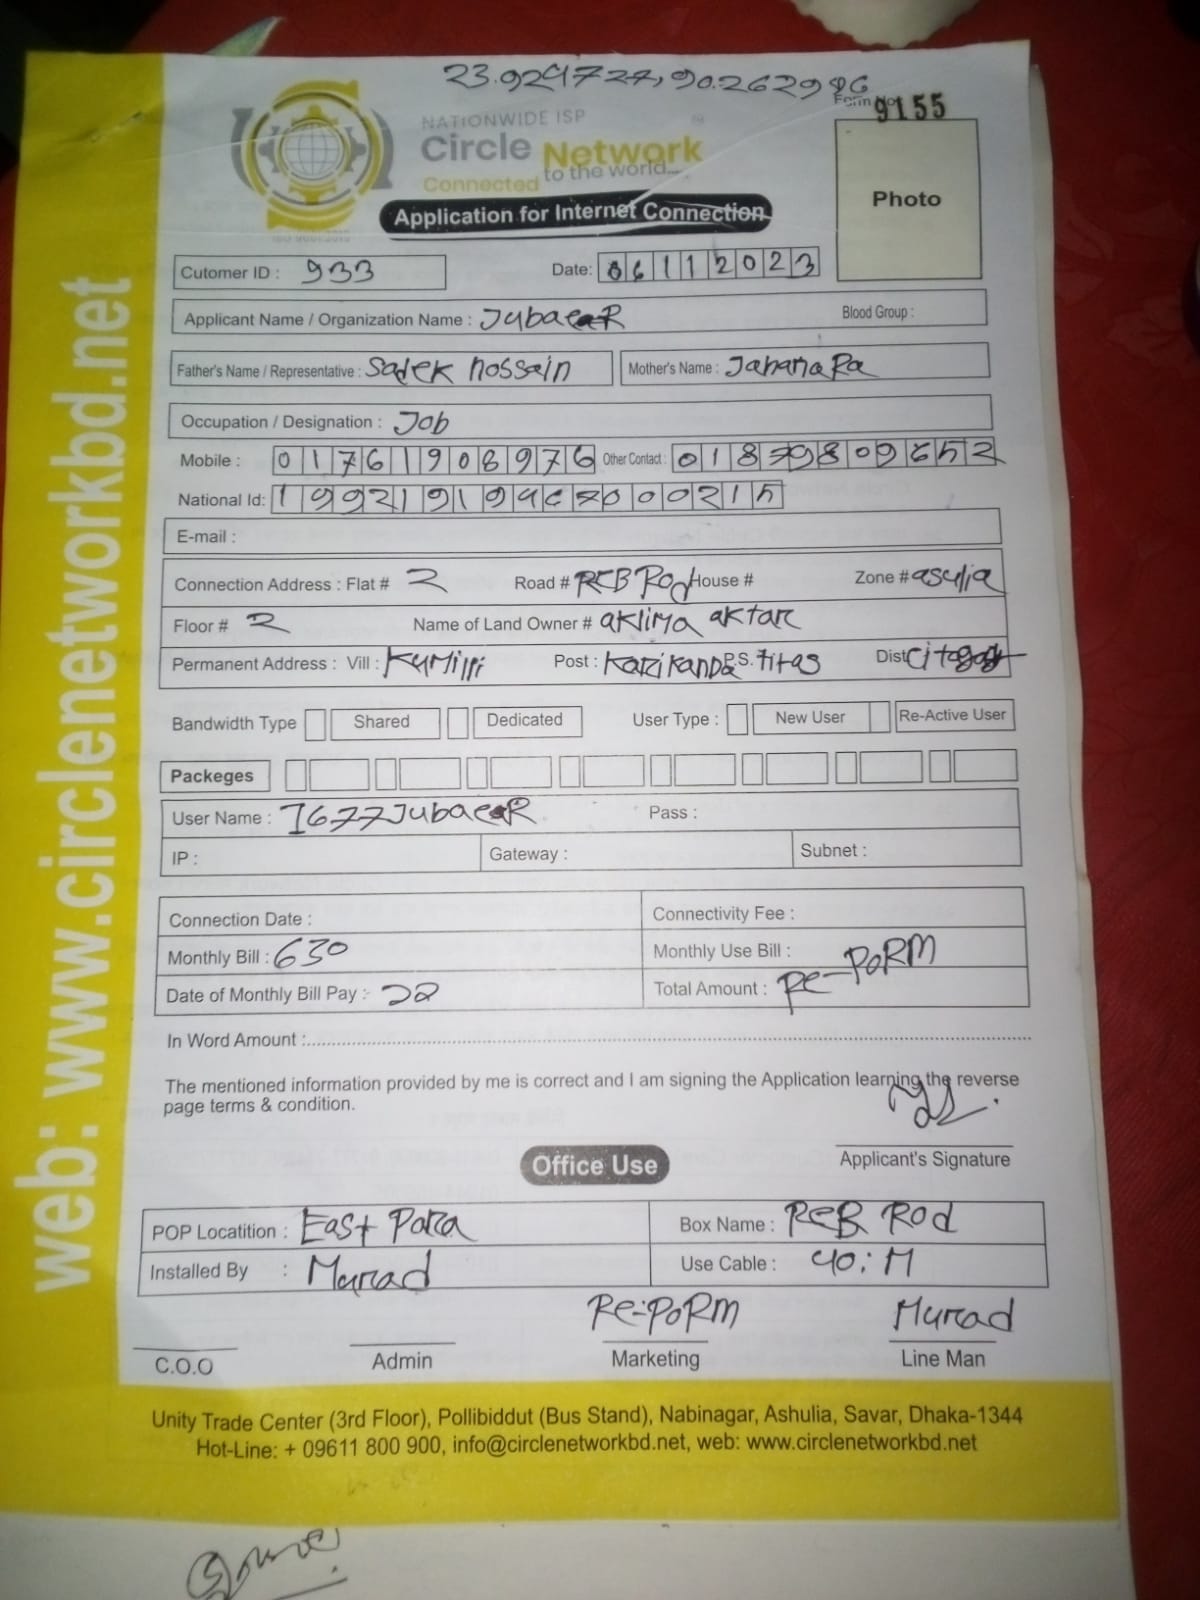 23.929724,90.262986
Form No 9155
NATIONWIDE ISP
Circle Network
Connected to the world...
Application for Internet Connection
Photo
Cutomer ID : 933
Date: 06112023
Applicant Name / Organization Name : JubaeR
Blood Group :
Father's Name / Representative : Sadek Hossain
Mother's Name : JahanaRa
Occupation / Designation : Job
Mobile : 01761908976 Other Contact : 01879809652
National Id:
E-mail :
Connection Address : Flat # 2 Road # REB Rod House # Zone # asulia
Floor # 2 Name of Land Owner # aklima aktar
Permanent Address : Vill : Kumilli Post : Karikanda P.S. titas Dist
Bandwidth Type Shared Dedicated User Type : New User Re-Active User
Packeges
User Name : 1677JubaeR Pass :
IP : Gateway : Subnet :
Connection Date : Connectivity Fee :
Monthly Bill : 630 Monthly Use Bill :
Date of Monthly Bill Pay : 22 Total Amount : Re-PoRM
In Word Amount :
The mentioned information provided by me is correct and I am signing the Application learning the reverse
page terms & condition.
Applicant's Signature
Office Use
POP Locatition : East Para Box Name : REB Rod
Installed By : Murad Use Cable : 40:M
Re-PoRM Murad
C.O.O Admin Marketing Line Man
Unity Trade Center (3rd Floor), Pollibiddut (Bus Stand), Nabinagar, Ashulia, Savar, Dhaka-1344
Hot-Line: + 09611 800 900, info@circlenetworkbd.net, web: www.circlenetworkbd.net
web: www.circlenetworkbd.net